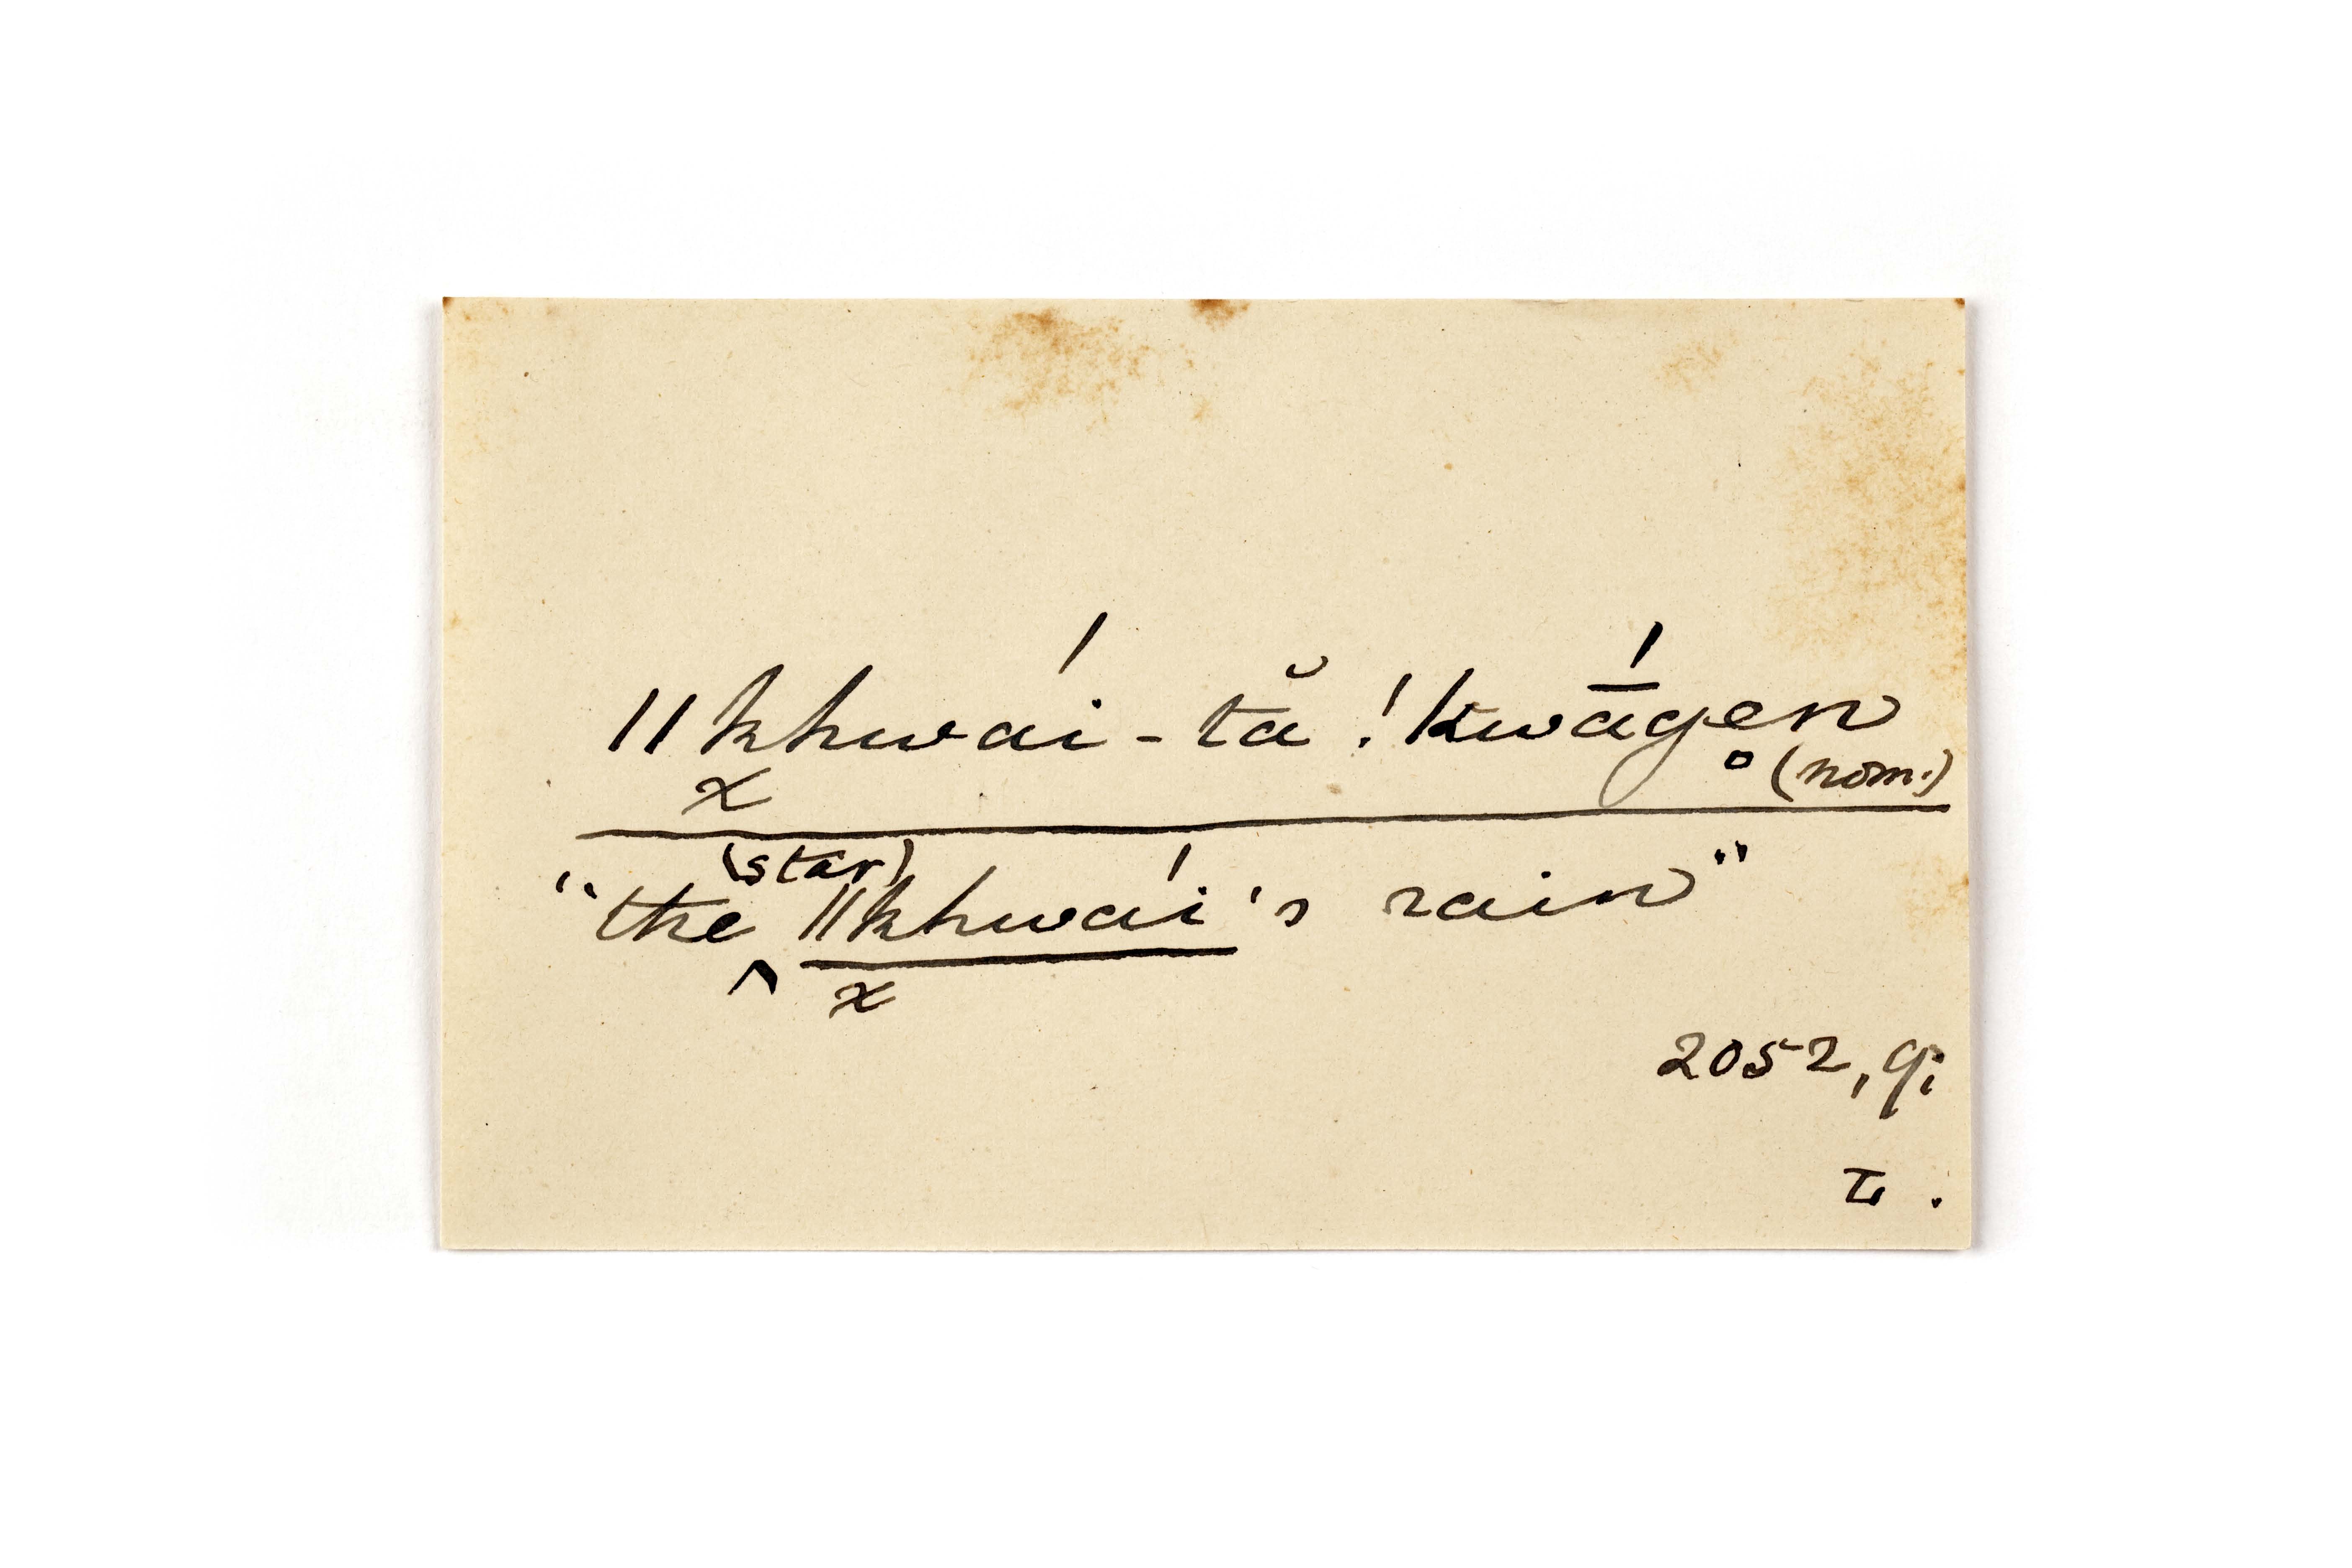 ǁkhwaí-tă !kwā́gen̥ (nom.)
"the (star) ǁkhwaí's rain"
2052, q;
L.